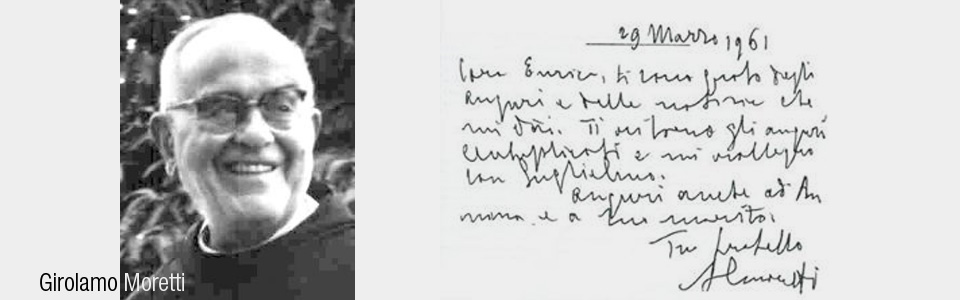 Girolamo Moretti
29 Marzo 1961
Caro Enrico, ti sono grato degli
auguri e delle notizie che
mi dài. Ti ritorno gli auguri
centuplicati e mi rallegro
con Guglielmo.
Auguri anche ad An
e a tuo marito.
Tuo fratello